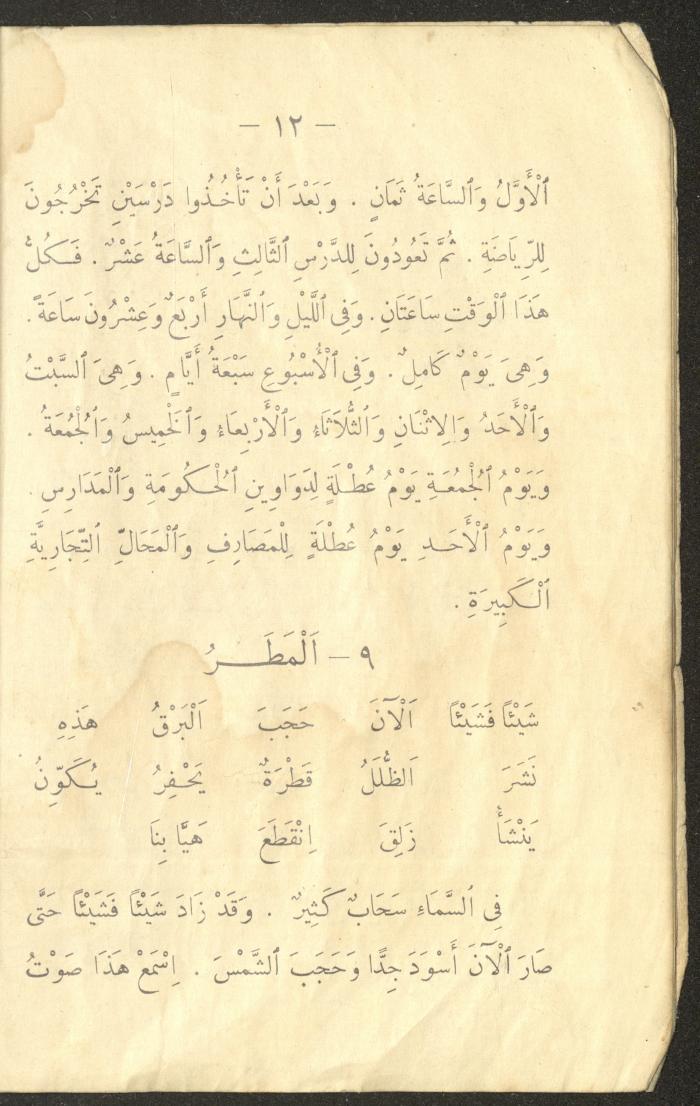 — ١٢ —
ٱلْأَوَّلُ وَٱلسَّاعَةُ ثَمَانٍ . وَبَعْدَ أَنْ تَأْخُذُوا دَرْسَيْنِ تَخْرُجُونَ
لِلرِّيَاضَةِ . ثُمَّ تَعُودُونَ لِلدَّرْسِ ٱلثَّالِثِ وَٱلسَّاعَةُ عَشْرٌ . فَكُلُّ
هٰذَا ٱلْوَقْتِ سَاعَتَانِ . وَفِى ٱللَّيْلِ وَٱلنَّهَارِ أَرْبَعٌ وَعِشْرُونَ سَاعَةً .
وَهِىَ يَوْمٌ كَامِلٌ . وَفِى ٱلْأُسْبُوعِ سَبْعَةُ أَيَّامٍ . وَهِىَ ٱلسَّبْتُ
وَٱلْأَحَدُ وَٱلِاثْنَانِ وَٱلثُّلَاثَاءُ وَٱلْأَرْبِعَاءُ وَٱلْخَمِيسُ وَٱلْجُمْعَةُ .
وَيَوْمُ ٱلْجُمْعَةِ يَوْمُ عُطْلَةٍ لِدَوَاوِينِ ٱلْحُكُومَةِ وَٱلْمَدَارِسِ .
وَيَوْمُ ٱلْأَحَدِ يَوْمُ عُطْلَةٍ لِلْمَصَارِفِ وَٱلْمَحَالِّ ٱلتِّجَارِيَّةِ
ٱلْكَبِيرَةِ .
٩ — اَلْمَطَرُ
شَيْئًا فَشَيْئًا اَلْآنَ حَجَبَ اَلْبَرْقُ هٰذِهِ
نَشَرَ اَلظُّلَلُ قَطْرَةٌ يَحْفِرُ يُكَوِّنُ
يَنْشَأُ زَلِقَ اِنْقَطَعَ هَيَّا بِنَا
فِى ٱلسَّمَاءِ سَحَابٌ كَثِيرٌ . وَقَدْ زَادَ شَيْئًا فَشَيْئًا حَتَّى
صَارَ ٱلْآنَ أَسْوَدَ جِدًّا وَحَجَبَ ٱلشَّمْسَ . اِسْمَعْ هٰذَا صَوْتُ